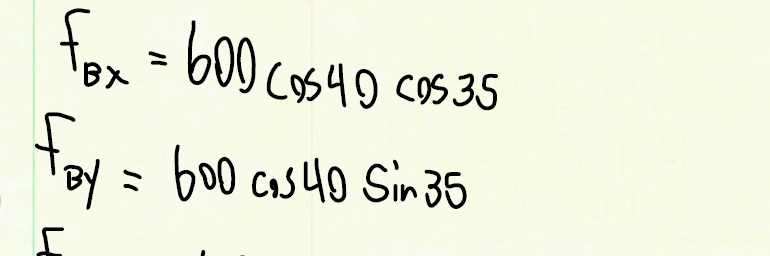 F_BX = 600 cos40 cos35
F_BY = 600 cos40 Sin35
F